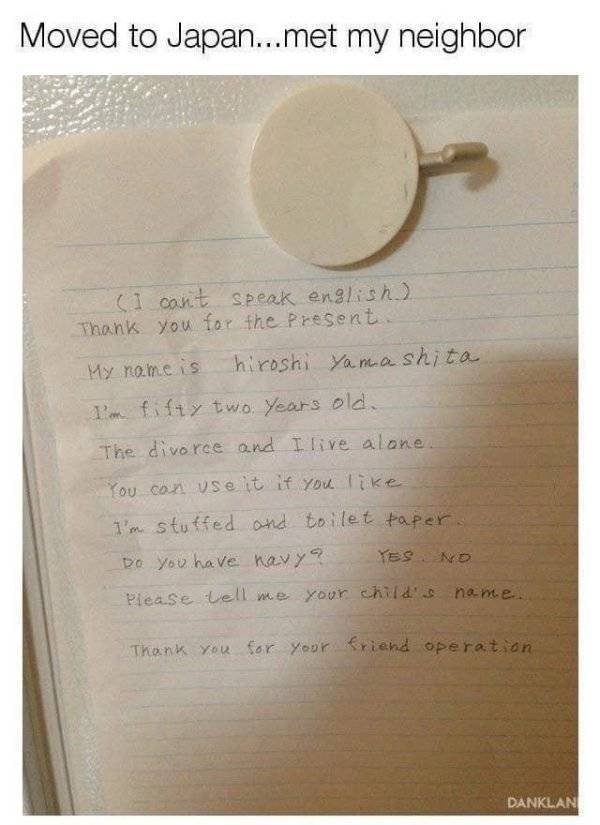 Moved to Japan...met my neighbor
(I can't speak english.)
Thank you for the Present.
My name is hiroshi Yamashita
I'm fifty two years old.
The divorce and I live alone.
You can use it if you like
I'm stuffed and toilet paper.
Do you have navy? YES. NO
Please tell me your child's name.
Thank you for your friend operation
DANKLAN